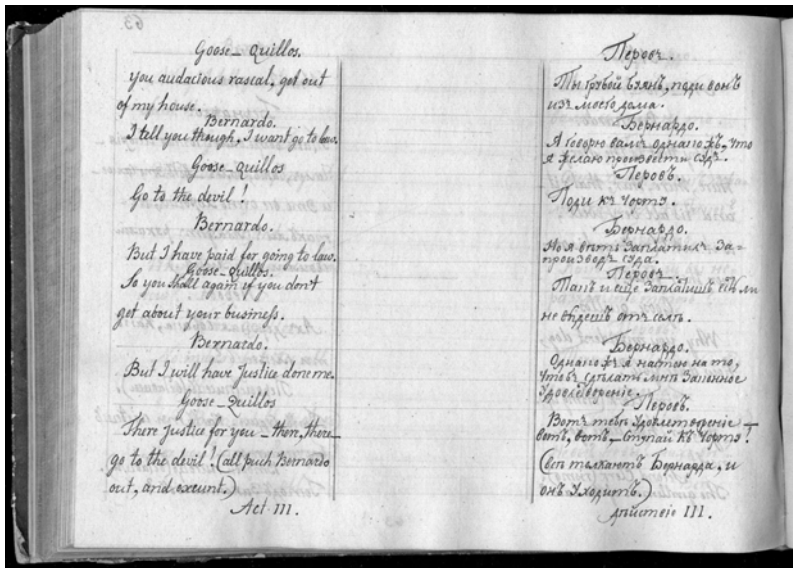 63.
Goose-Quillos.
you audacious rascal, get out
of my house.
Bernardo.
I tell you though, I want go to law.
Goose-quillos
Go to the devil!
Bernardo.
But I have paid for going to law.
Goose-quillos.
So you shall again if you don't
get about your business.
Bernardo.
But I will have Justice done me.
Goose-Quillos
There Justice for you - there, there -
go to the devil! (all push Bernardo
out, and exeunt.)
Act III.
Перовъ.
Ты грубой буянъ, поди вонъ
изъ моего дома.
Бернардо.
Я говорю вамъ однако жъ, что
я желаю произвести судъ.
Перовъ.
Поди къ чорту.
Бернардо.
Но я вѣть заплатилъ за=
производъ суда.
Перовъ
Такъ и еще заплатишь если
не
отъ
Бернардо.
Однако жъ я настою на то,
чтобъ сдѣлать мнѣ законное
удовлетвореніе.
Перовъ.
Вотъ тебѣ удовлетвореніе -
вотъ, вотъ, - ступай къ чорту!
(всѣ толкаютъ Бернарда, и
онъ уходитъ.)
III.